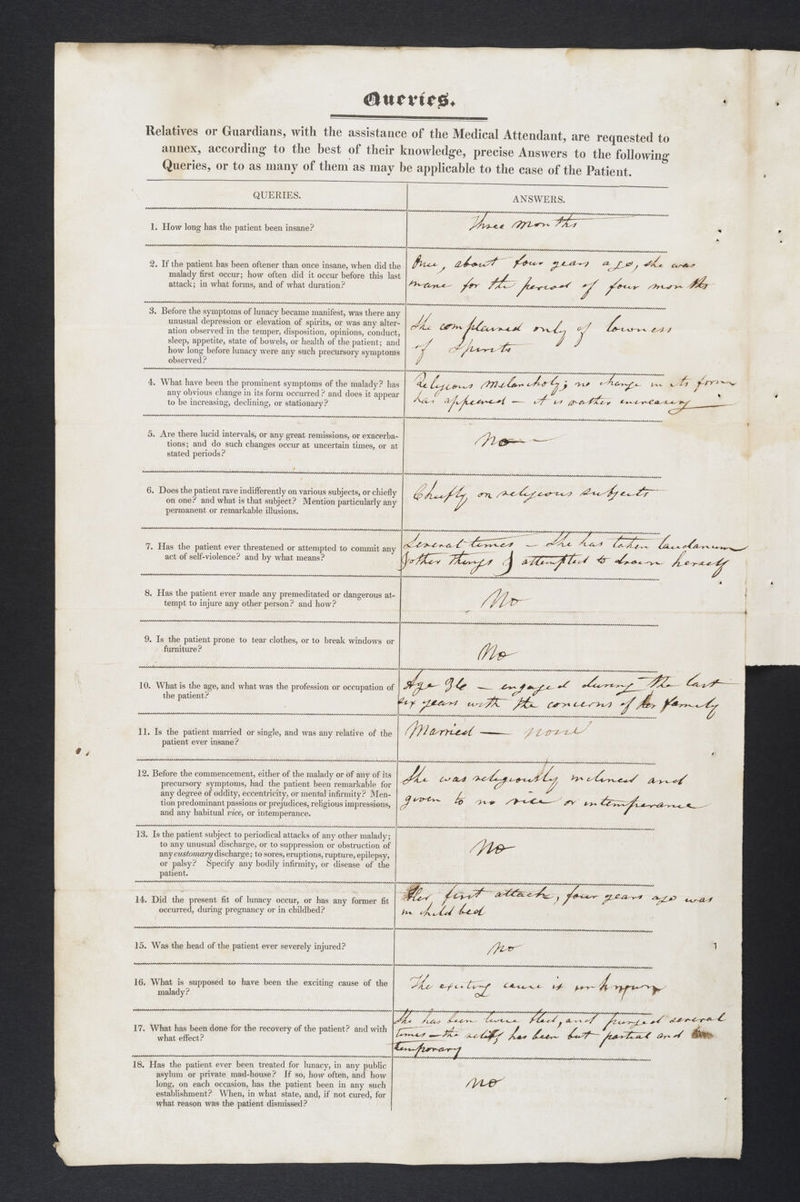 Queries.
Relatives or Guardians, with the assistance of the Medical Attendant, are requested to
annex, according to the best of their knowledge, precise Answers to the following
Queries, or to as many of them as may be applicable to the case of the Patient.
QUERIES.
ANSWERS.
1. How long has the patient been insane?
Three months
2. If the patient has been oftener than once insane, when did the
malady first occur; how often did it occur before this last
attack; in what forms, and of what duration?
Once, about four years ago, she was
insane for the period of four months
3. Before the symptoms of lunacy became manifest, was there any
unusual depression or elevation of spirits, or was any alter-
ation observed in the temper, disposition, opinions, conduct,
sleep, appetite, state of bowels, or health of the patient; and
how long before lunacy were any such precursory symptoms
observed?
She complained only of lowness
of Spirits
4. What have been the prominent symptoms of the malady? has
any obvious change in its form occurred? and does it appear
to be increasing, declining, or stationary?
Religious Melancholy; no change in its form
has appeared — it is rather increasing
5. Are there lucid intervals, or any great remissions, or exacerba-
tions; and do such changes occur at uncertain times, or at
stated periods?
No
6. Does the patient rave indifferently on various subjects, or chiefly
on one? and what is that subject? Mention particularly any
permanent or remarkable illusions.
Chiefly on religious subjects
7. Has the patient ever threatened or attempted to commit any
act of self-violence? and by what means?
Several times — She has taken laudanum
& other things & attempted to drown herself
8. Has the patient ever made any premeditated or dangerous at-
tempt to injure any other person? and how?
No
9. Is the patient prone to tear clothes, or to break windows or
furniture?
No
10. What is the age, and what was the profession or occupation of
the patient?
Age 36 — engaged during the last
six years with the concerns of her family
11. Is the patient married or single, and was any relative of the
patient ever insane?
Married — none
12. Before the commencement, either of the malady or of any of its
precursory symptoms, had the patient been remarkable for
any degree of oddity, eccentricity, or mental infirmity? Men-
tion predominant passions or prejudices, religious impressions,
and any habitual vice, or intemperance.
She was religiously inclined and
given to no vice or intemperance
13. Is the patient subject to periodical attacks of any other malady;
to any unusual discharge, or to suppression or obstruction of
any customary discharge; to sores, eruptions, rupture, epilepsy,
or palsy? Specify any bodily infirmity, or disease of the
patient.
No
14. Did the present fit of lunacy occur, or has any former fit
occurred, during pregnancy or in childbed?
Her first attack, four years ago was
in child bed
15. Was the head of the patient ever severely injured?
No
16. What is supposed to have been the exciting cause of the
malady?
The exciting cause is unknown
17. What has been done for the recovery of the patient? and with
what effect?
She has been twice bled, and purged several
times — the relief has been but partial and
temporary
18. Has the patient ever been treated for lunacy, in any public
asylum or private mad-house? If so, how often, and how
long, on each occasion, has the patient been in any such
establishment? When, in what state, and, if not cured, for
what reason was the patient dismissed?
No